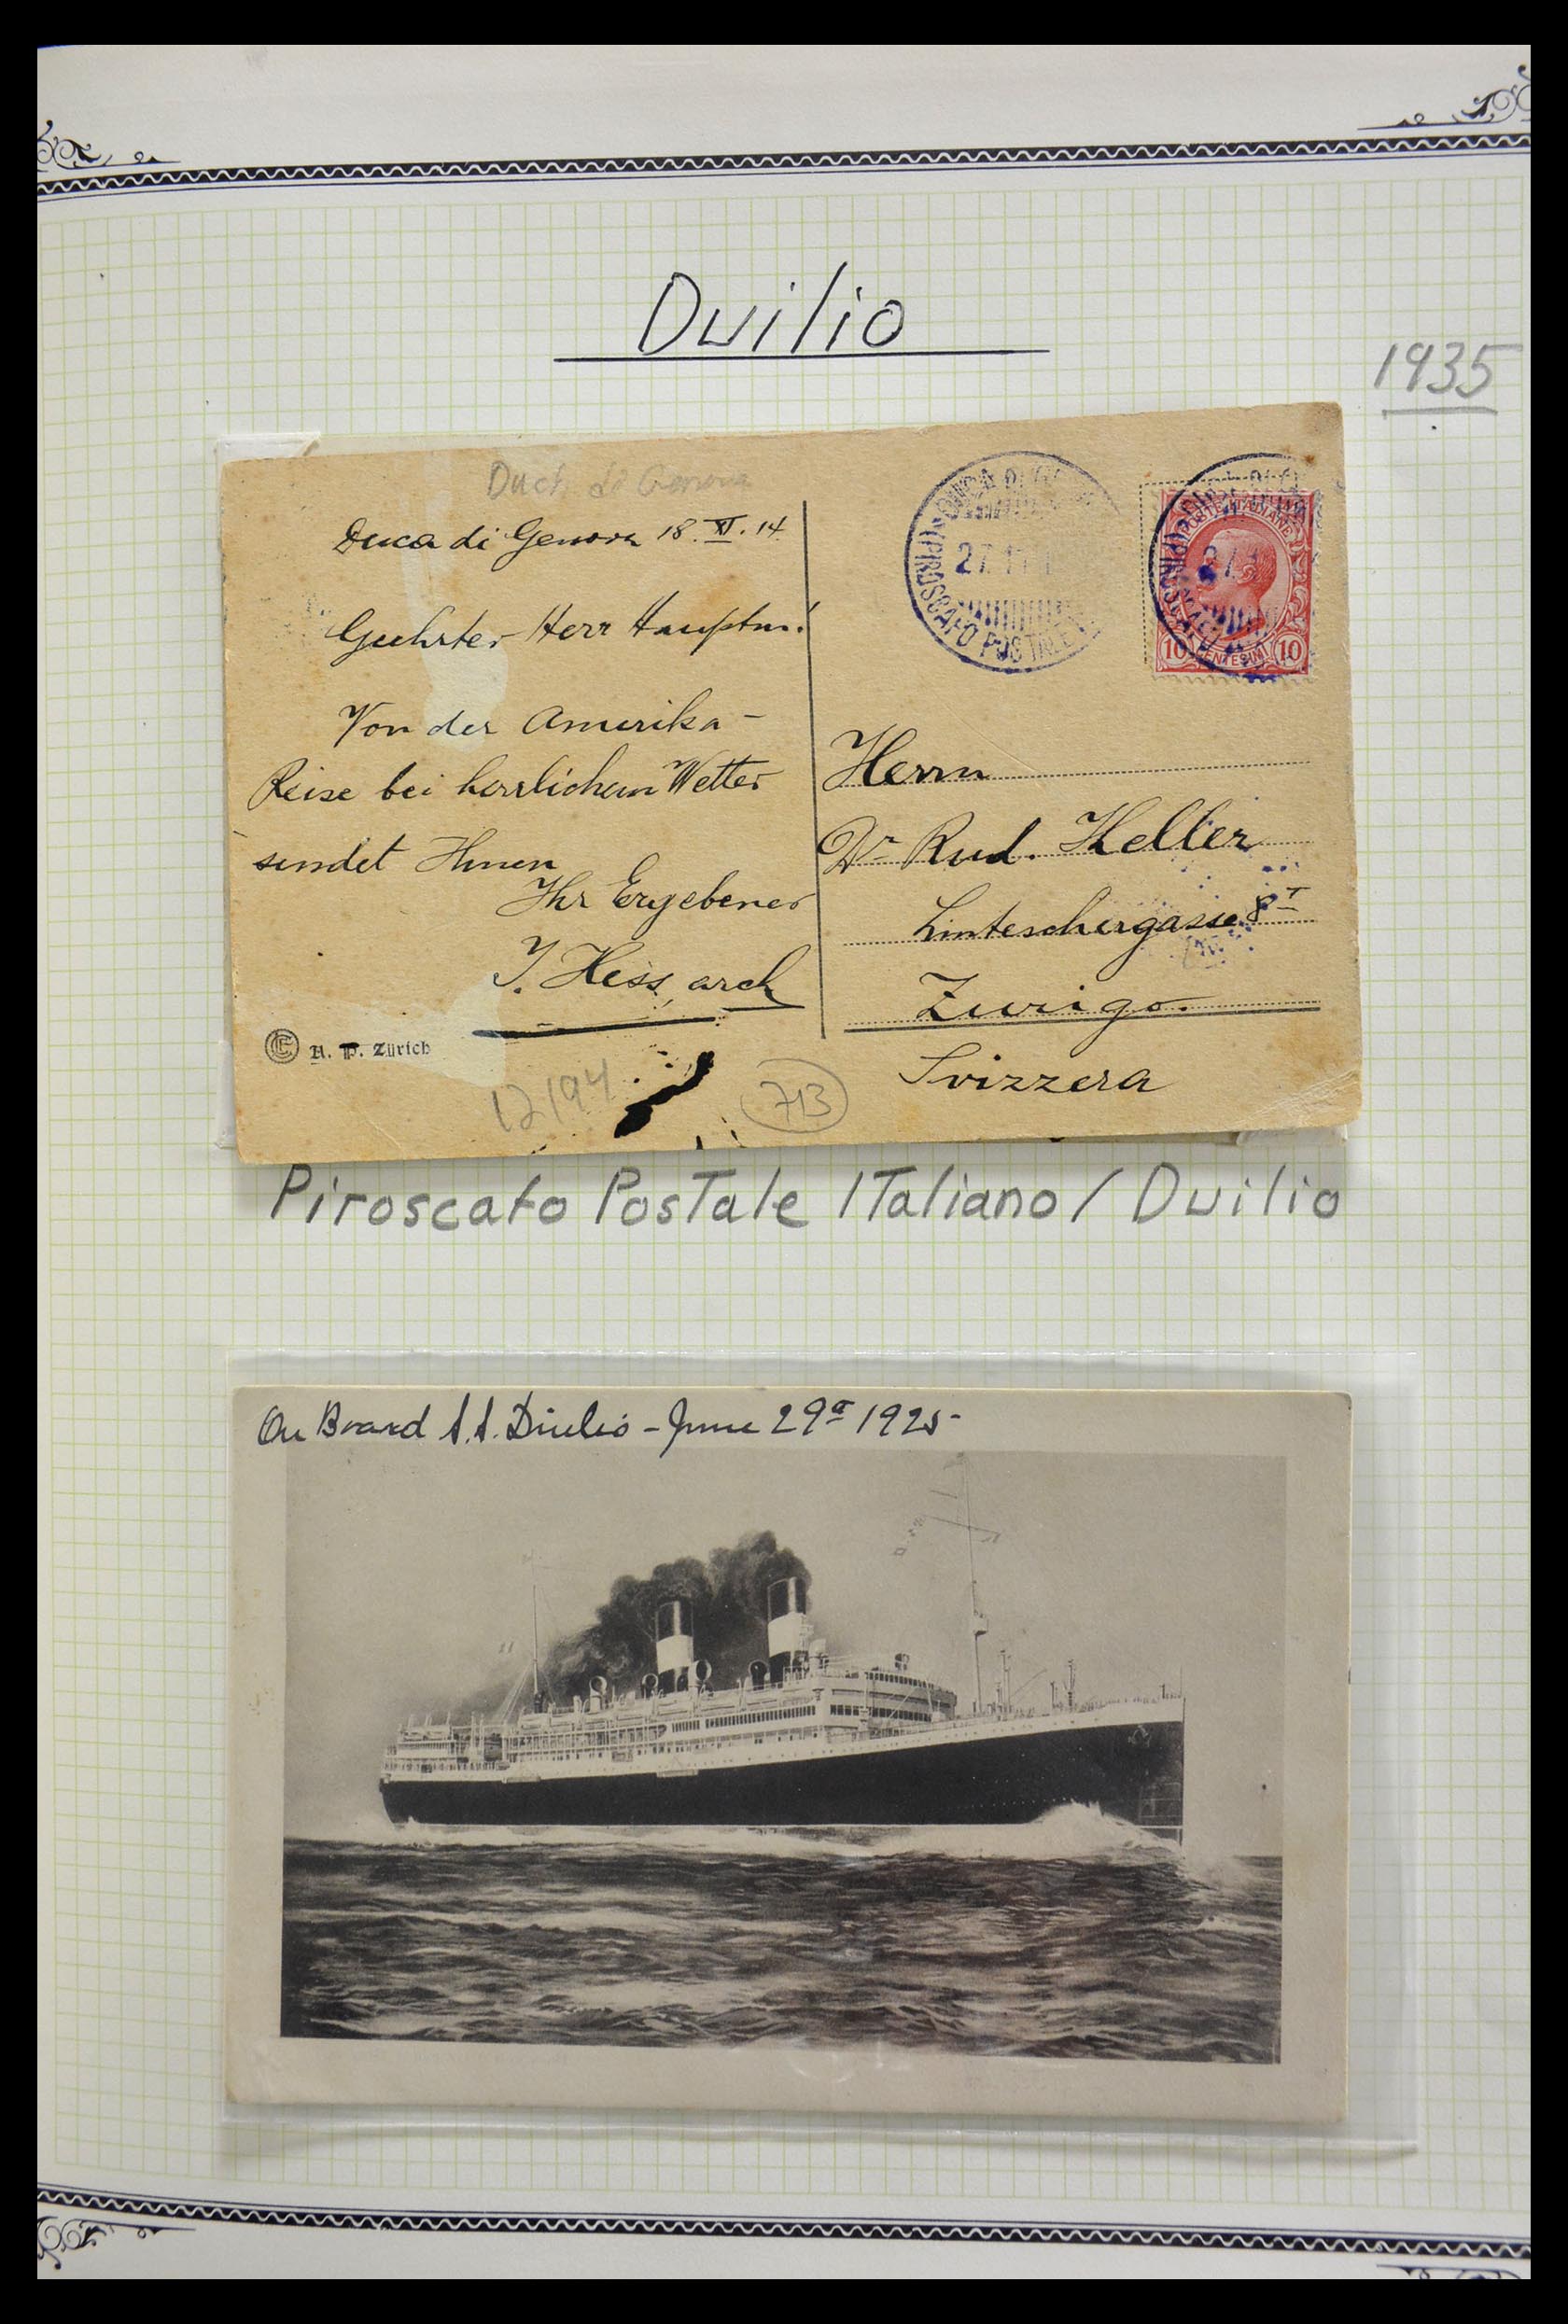 Duilio
1935
Duca di Genova 18. XI. 14
Geehrter Herr Hauptm!
Von der Amerika-
Reise bei herrlichem Wetter
sendet Ihnen
Ihr Ergebener
J. Hess, arch
H. P. Zürich
12/94
713
(PIROSCAFO POSTALE
27 11
POSTE ITALIANE
10 CENTESIMI 10
Herrn
Dr Rud. Keller
Linteschergasse 8 I
Zurigo.
Svizzera
Piroscafo Postale Italiano / Duilio
On Board S.S. Duilio - June 29 1925-